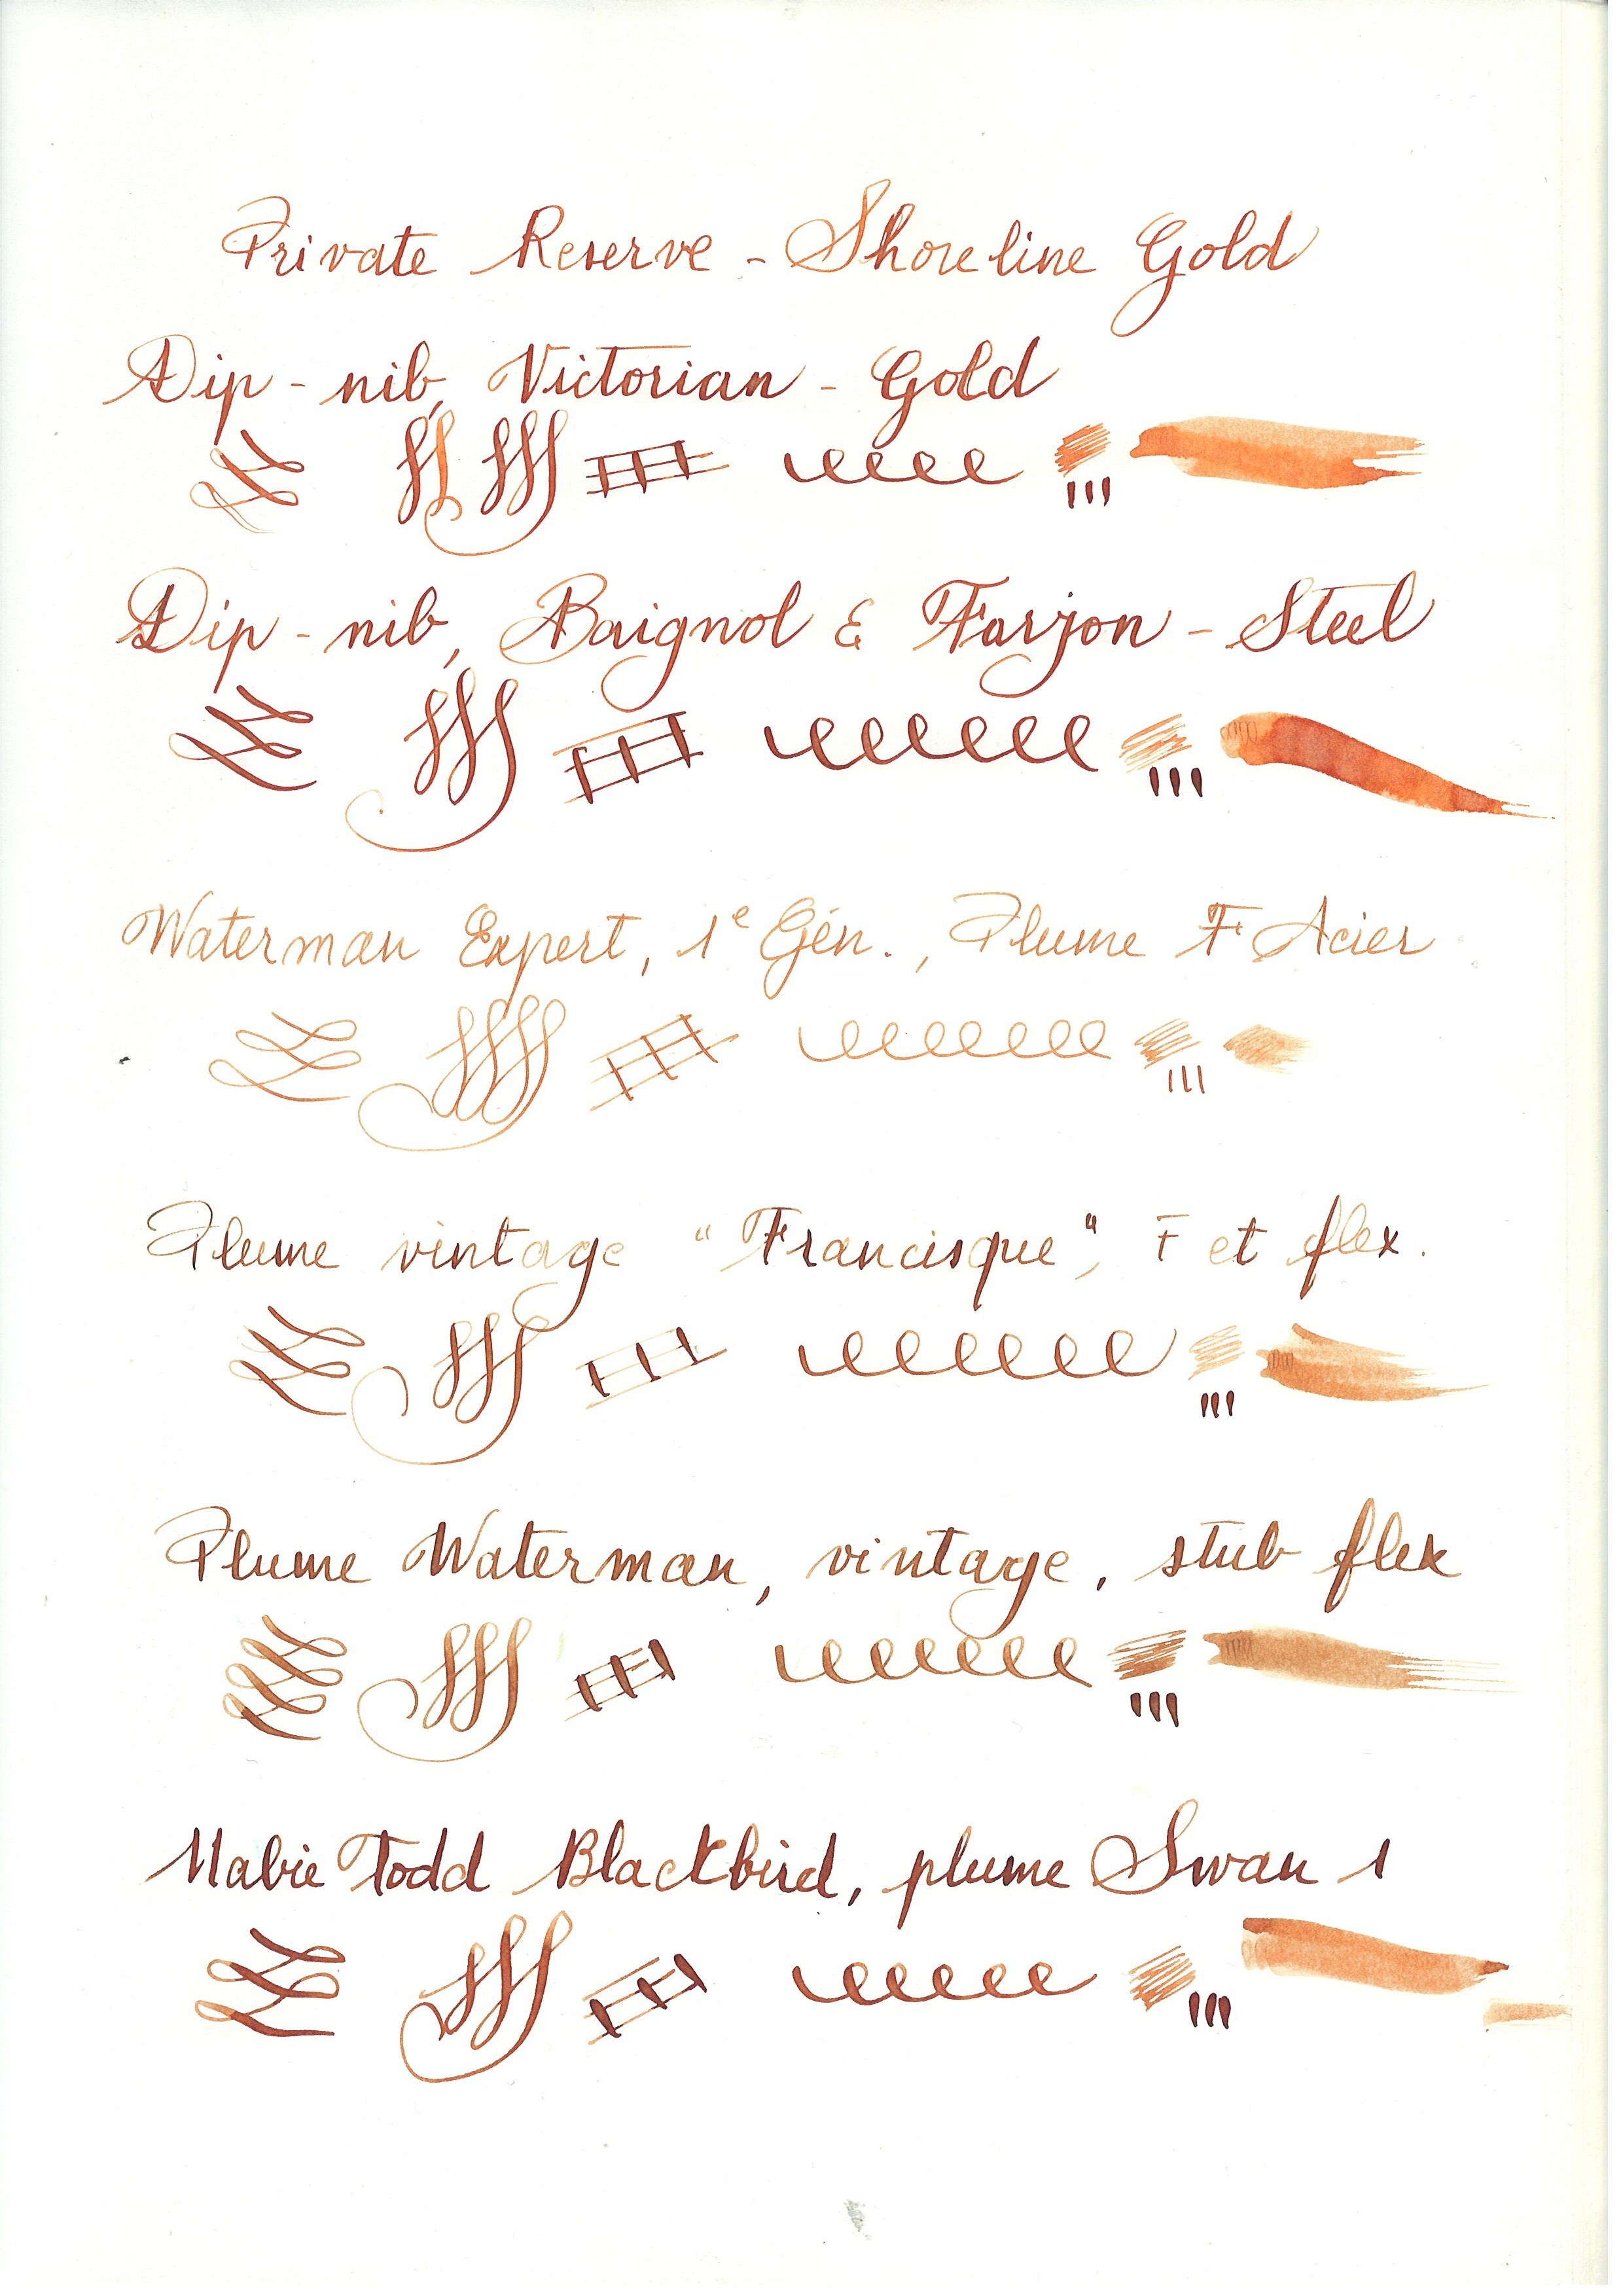 Private Reserve - Shoreline Gold
Dip-nib, Victorian - Gold
Dip-nib, Baignol & Farjon - Steel
Waterman Expert, 1e Gén., Plume F Acier
Plume vintage "Francisque", F et flex.
Plume Waterman, vintage, stub flex
Mabie Todd Blackbird, plume Swan 1